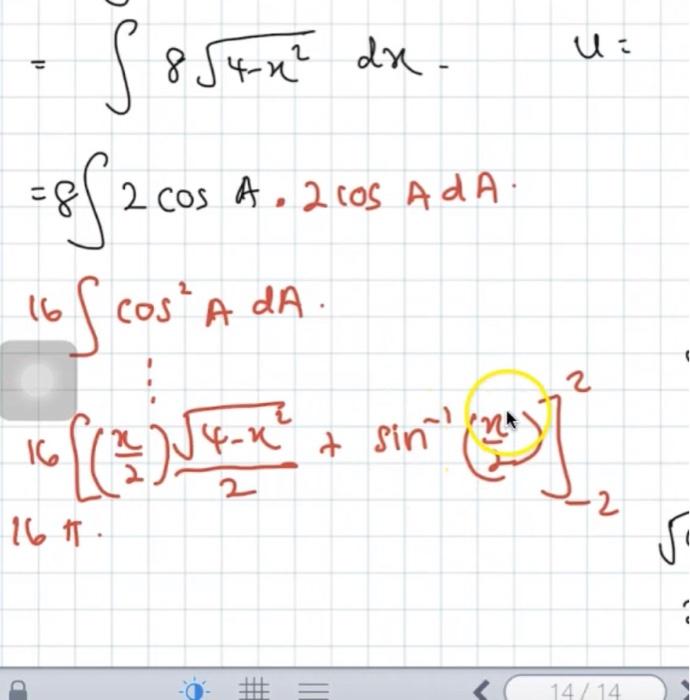 = ∫ 8√(4-x²) dx. u =
= 8∫ 2 cos A . 2 cos A dA.
16 ∫ cos² A dA.
⋮
16 [(x/2) √(4-x²)/2 + sin⁻¹ (x/2)]²₋₂
16 π.
14 / 14